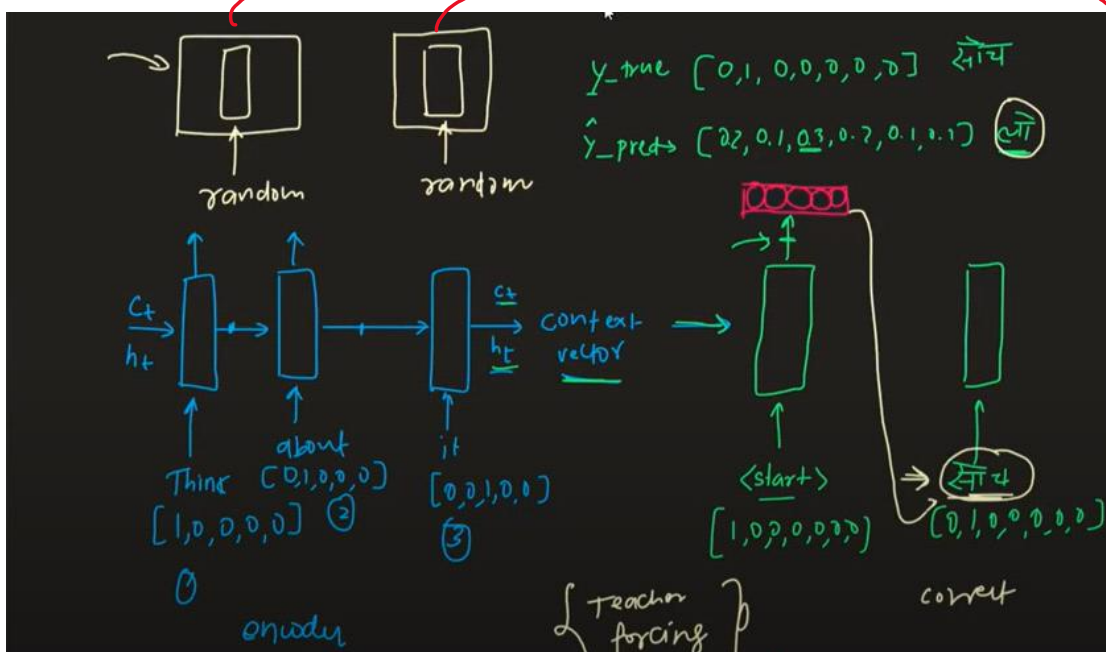 random
random
y_true [0,1,0,0,0,0,0] सोच
ŷ_pred → [0.2, 0.1, 0.3, 0.2, 0.1, 0.1] लो
Ct
ht
Ct
ht
context
vector
Think
[1,0,0,0,0]
1
about
[0,1,0,0,0]
2
it
[0,0,1,0,0]
3
<start>
[1,0,0,0,0,0,0]
सोच
[0,1,0,0,0,0,0]
encoder
{ Teacher
forcing }
correct